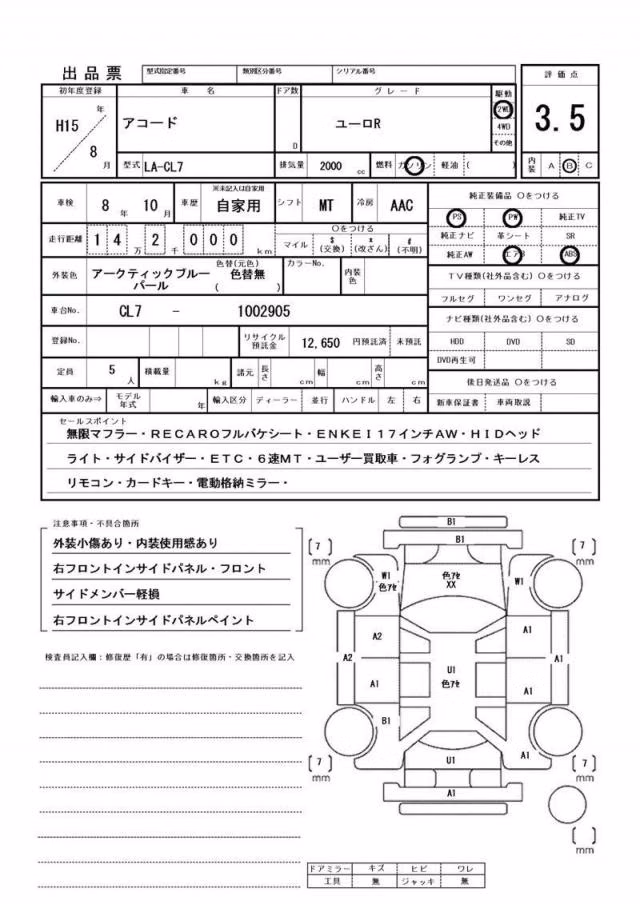 出品票 型式指定番号 類別区分番号 シリアル番号 評価点
初年度登録 車名 ドア数 グレード 駆動 3.5
H15 年 アコード D ユーロR 2WD
8 月 4WD
その他
型式 LA-CL7 排気量 2000 cc 燃料 ガソリン 軽油 ( ) 内装 A B C
車検 8 年 10 月 車歴 ※未記入は自家用 自家用 シフト MT 冷房 AAC 純正装備品 ○をつける
走行距離 1 4 万 2 千 0 0 0 km ○をつける マイル $ (交換) * (改ざん) # (不明) PS PW 純正TV
純正ナビ 革シート SR
外装色 アークティックブルーパール 色替(元色) 色替無 ( ) カラーNo. 内装色 純正AW エアB ABS
TV種類(社外品含む) ○をつける
フルセグ ワンセグ アナログ
車台No. CL7 - 1002905 ナビ種類(社外品含む) ○をつける
登録No. リサイクル預託金 12,650 円預託済 未預託 HDD DVD SD
DVD再生可
定員 5 人 積載量 kg 諸元 長さ cm 幅 cm 高さ cm 後日発送品 ○をつける
輸入車のみ⇒ モデル年式 年 輸入区分 ディーラー 並行 ハンドル 左 右 新車保証書 車両取説
セールスポイント
無限マフラー・RECAROフルバケシート・ENKEI17インチAW・HIDヘッド
ライト・サイドバイザー・ETC・6速MT・ユーザー買取車・フォグランプ・キーレス
リモコン・カードキー・電動格納ミラー・
注意事項・不具合箇所
外装小傷あり・内装使用感あり
右フロントインサイドパネル・フロント
サイドメンバー軽損
右フロントインサイドパネルペイント
検査員記入欄：修復歴「有」の場合は修復箇所・交換箇所を記入
B1
B1
7 mm 7 mm
W1 色アセ 色アセ XX W1
A2 A1
A2 A1
U1 色アセ
A1 A1
B1 A1
U1
7 mm 7 mm
A1
mm
ドアミラー キズ ヒビ ワレ
工具 無 ジャッキ 無